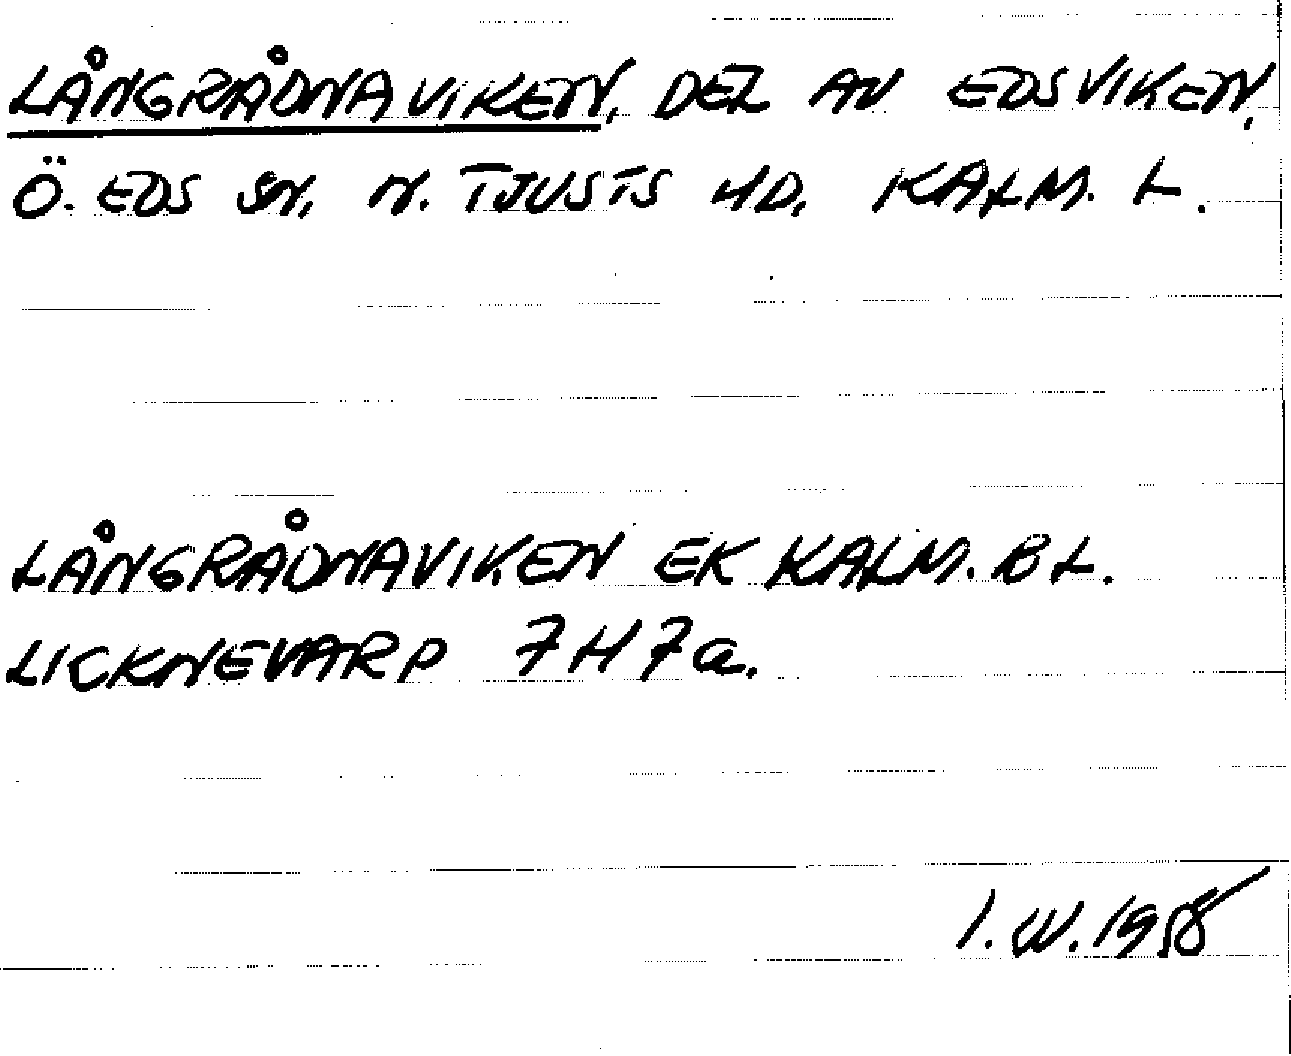 LÅNGRÅDNAVIKEN, DEL AV EDSVIKEN,
Ö. EDS SN, N. TJUSTS HD, KALM. L.
LÅNGRÅDNAVIKEN EK KALM. B L.
LICKNEVARP 7H7a.
I.W. 1958